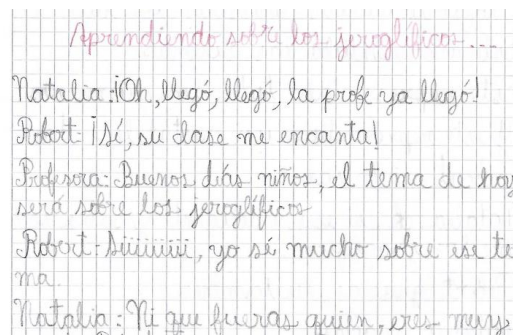 Aprendiendo sobre los jeroglíficos...
Natalia: ¡Oh, llegó, llegó, la profe ya llegó!
Robert: ¡Sí, su clase me encanta!
Profesora: Buenos días niños, el tema de hoy
será sobre los jeroglíficos
Robert: Siiiiiiii, yo sé mucho sobre ese te
ma.
Natalia: Ni que fueras quien, eres muy